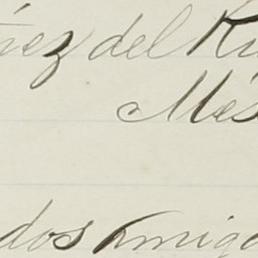 ez del Ru
Més
dos amigo